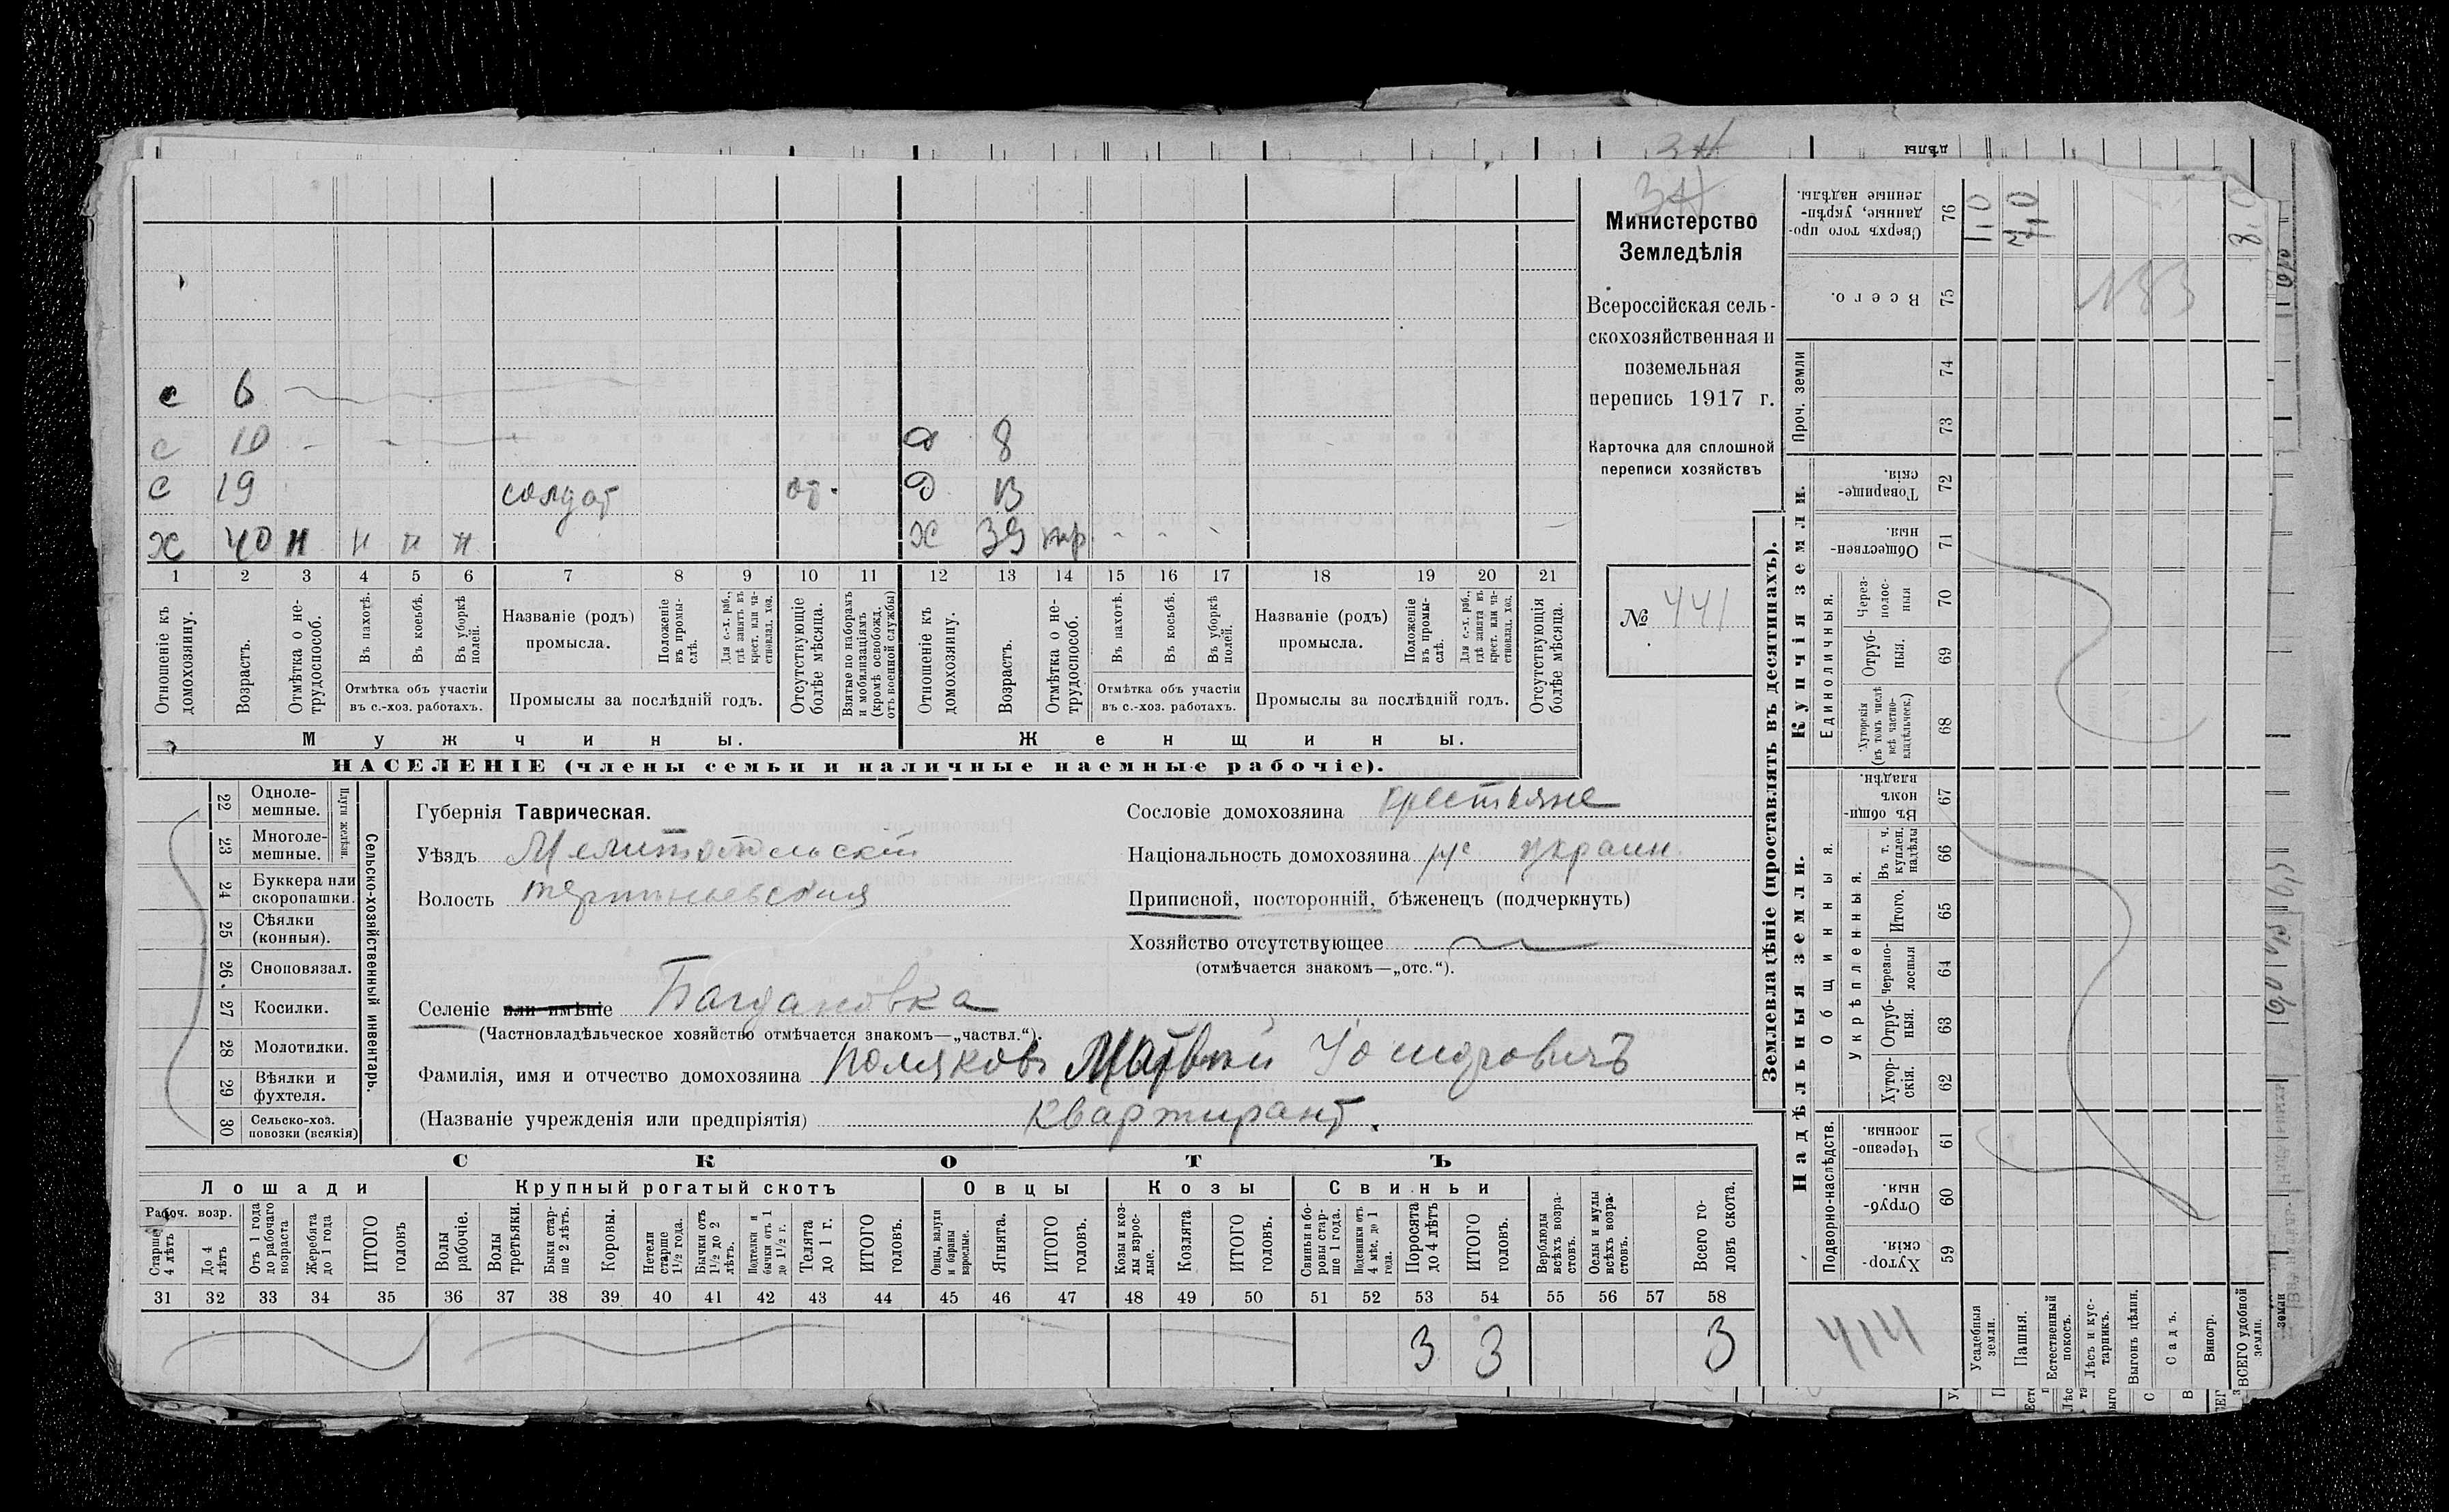 с 6
с 10 д 8
с 19 солдат от. д 13
х 40 н н н н х 39 пр. - - -
1 2 3 4 5 6 7 8 9 10 11 12 13 14 15 16 17 18 19 20 21
Отношеніе къ домохозяину.
Возрастъ.
Отмѣтка о нетрудоспособ.
Въ пахотѣ.
Въ косьбѣ.
Въ уборкѣ полей.
Отмѣтка объ участіи въ с.-хоз. работахъ.
Названіе (родъ) промысла.
Положеніе въ промыслѣ.
Для с.-х. раб., гдѣ занятъ въ крест. или частновлад. хоз.
Промыслы за послѣдній годъ.
Отсутствующіе болѣе мѣсяца.
Взятые по наборамъ и мобилизаціямъ (кромѣ освобожд. отъ военной службы)
Отношеніе къ домохозяину.
Возрастъ.
Отмѣтка о нетрудоспособ.
Въ пахотѣ.
Въ косьбѣ.
Въ уборкѣ полей.
Отмѣтка объ участіи въ с.-хоз. работахъ.
Названіе (родъ) промысла.
Положеніе въ промыслѣ.
Для с.-х. раб., гдѣ занята въ крест. или частновлад. хоз.
Промыслы за послѣдній годъ.
Отсутствующія болѣе мѣсяца.
Мужчины. Женщины.
НАСЕЛЕНІЕ (члены семьи и наличные наемные рабочіе).
Министерство
Земледѣлія
Всероссійская сель-
скохозяйственная и
поземельная
перепись 1917 г.
Карточка для сплошной
переписи хозяйствъ
№ 441
22 Однолемешные.
23 Многолемешные.
Плуги желѣзн.
24 Буккера или скоропашки.
25 Сѣялки (конныя).
26. Сноповязал.
27 Косилки.
28 Молотилки.
29 Вѣялки и фухтеля.
30 Сельско-хоз. повозки (всякія)
Сельско-хозяйственный инвентарь.
Губернія Таврическая.
Уѣздъ Мелитопольскій
Волость
Сословіе домохозяина крестьяне
Національность домохозяина рус украин.
Приписной, посторонній, бѣженецъ (подчеркнуть)
Хозяйство отсутствующее
(отмѣчается знакомъ—„отс.“).
Селеніе или имѣніе Багдановка
(Частновладѣльческое хозяйство отмѣчается знакомъ—„частвл.“).
Фамилія, имя и отчество домохозяина Поляковъ Матвѣй
(Названіе учрежденія или предпріятія) квартирант.
СКОТЪ
Лошади Крупный рогатый скотъ Овцы Козы Свиньи
Рабоч. возр.
Старше 4 лѣтъ
До 4 лѣтъ
Отъ 1 года до рабочаго возраста
Жеребята до 1 года
ИТОГО головъ
Волы рабочіе.
Волы третьяки.
Быки старше 2 лѣтъ.
Коровы.
Нетели старше 1½ года.
Бычки отъ 1½ до 2 лѣтъ.
Подтелки и бычки отъ 1 до 1½ г.
Телята до 1 г.
ИТОГО головъ.
Овцы, валухи и бараны взрослые.
Ягнята.
ИТОГО головъ.
Козы и козлы взрослые.
Козлята
ИТОГО головъ.
Свиньи и боровы старше 1 года.
Подсвинки отъ 4 мѣс. до 1 года.
Поросята до 4 лѣтъ
ИТОГО головъ.
Верблюды всѣхъ возрастовъ.
Ослы и мулы всѣхъ возрастовъ.
Всего головъ скота.
31 32 33 34 35 36 37 38 39 40 41 42 43 44 45 46 47 48 49 50 51 52 53 54 55 56 57 58
3 3 3
Землевладѣніе (проставлять въ десятинахъ).
Надѣльныя земли. Купчія земли.
Подворно-наслѣдств.
Общинныя.
Укрѣпленныя.
Единоличныя.
Проч. земли
Сверхъ того проданные, укрѣпленные надѣлы. 76 1,0 7,0 8,0
Всего. 75
74
73
Товарищескія. 72
Общественныя 71
Черезполосныя 70
Отрубныя. 69
Хуторскія (въ томъ числѣ всѣ частновладѣльческ.) 68
Въ общинномъ владѣн. 67
Въ т. ч. куплен. надѣлы 66
Итого. 65
Черезполосныя 64
Отрубныя. 63
Хуторскія. 62
Черезполосныя. 61
Отрубныя. 60
Хуторскія. 59
183
414
Усадебныя земли.
Пашня.
Естественный покосъ.
Лѣсъ и кустарникъ.
Выгонъ цѣлин.
Садъ.
Виногр.
ВСЕГО удобной земли.